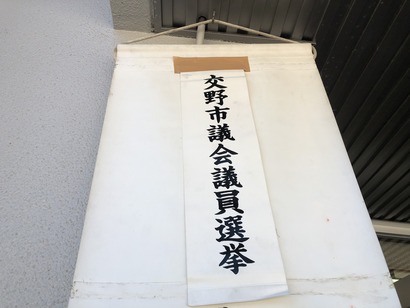 交野市議会議員選挙